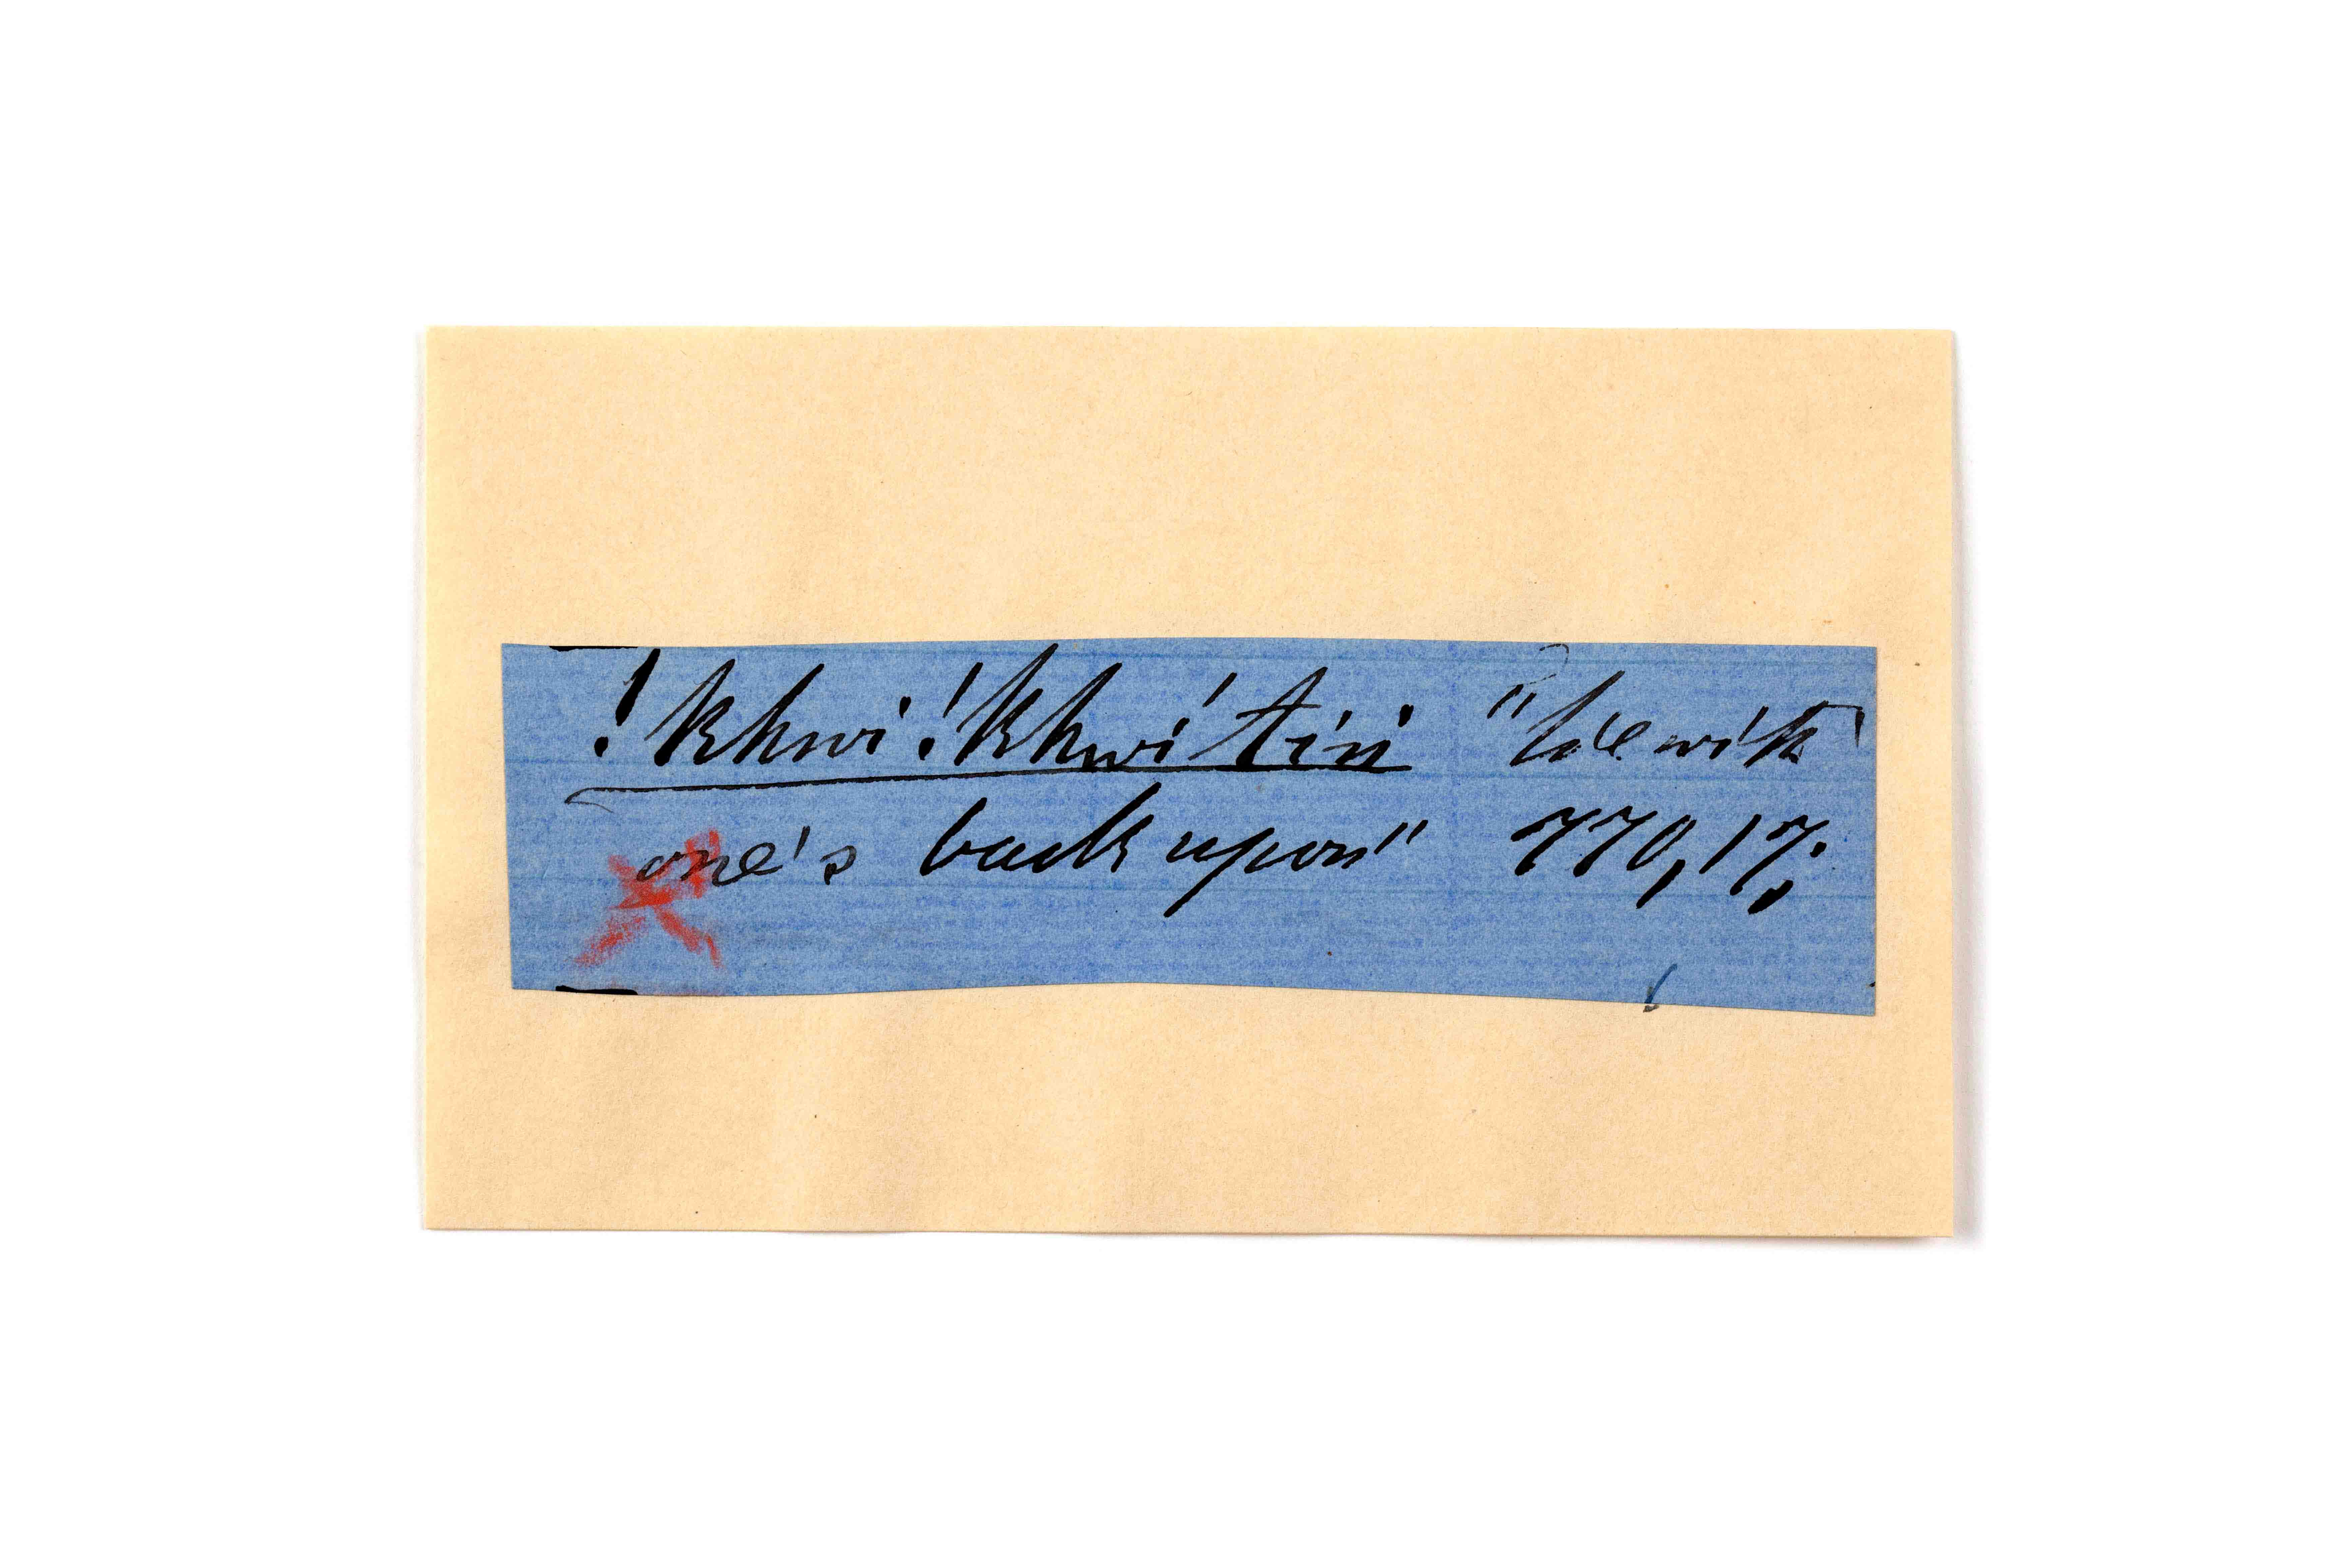 !khwi !khwi tin "lie with
one's back upon" 770,17;